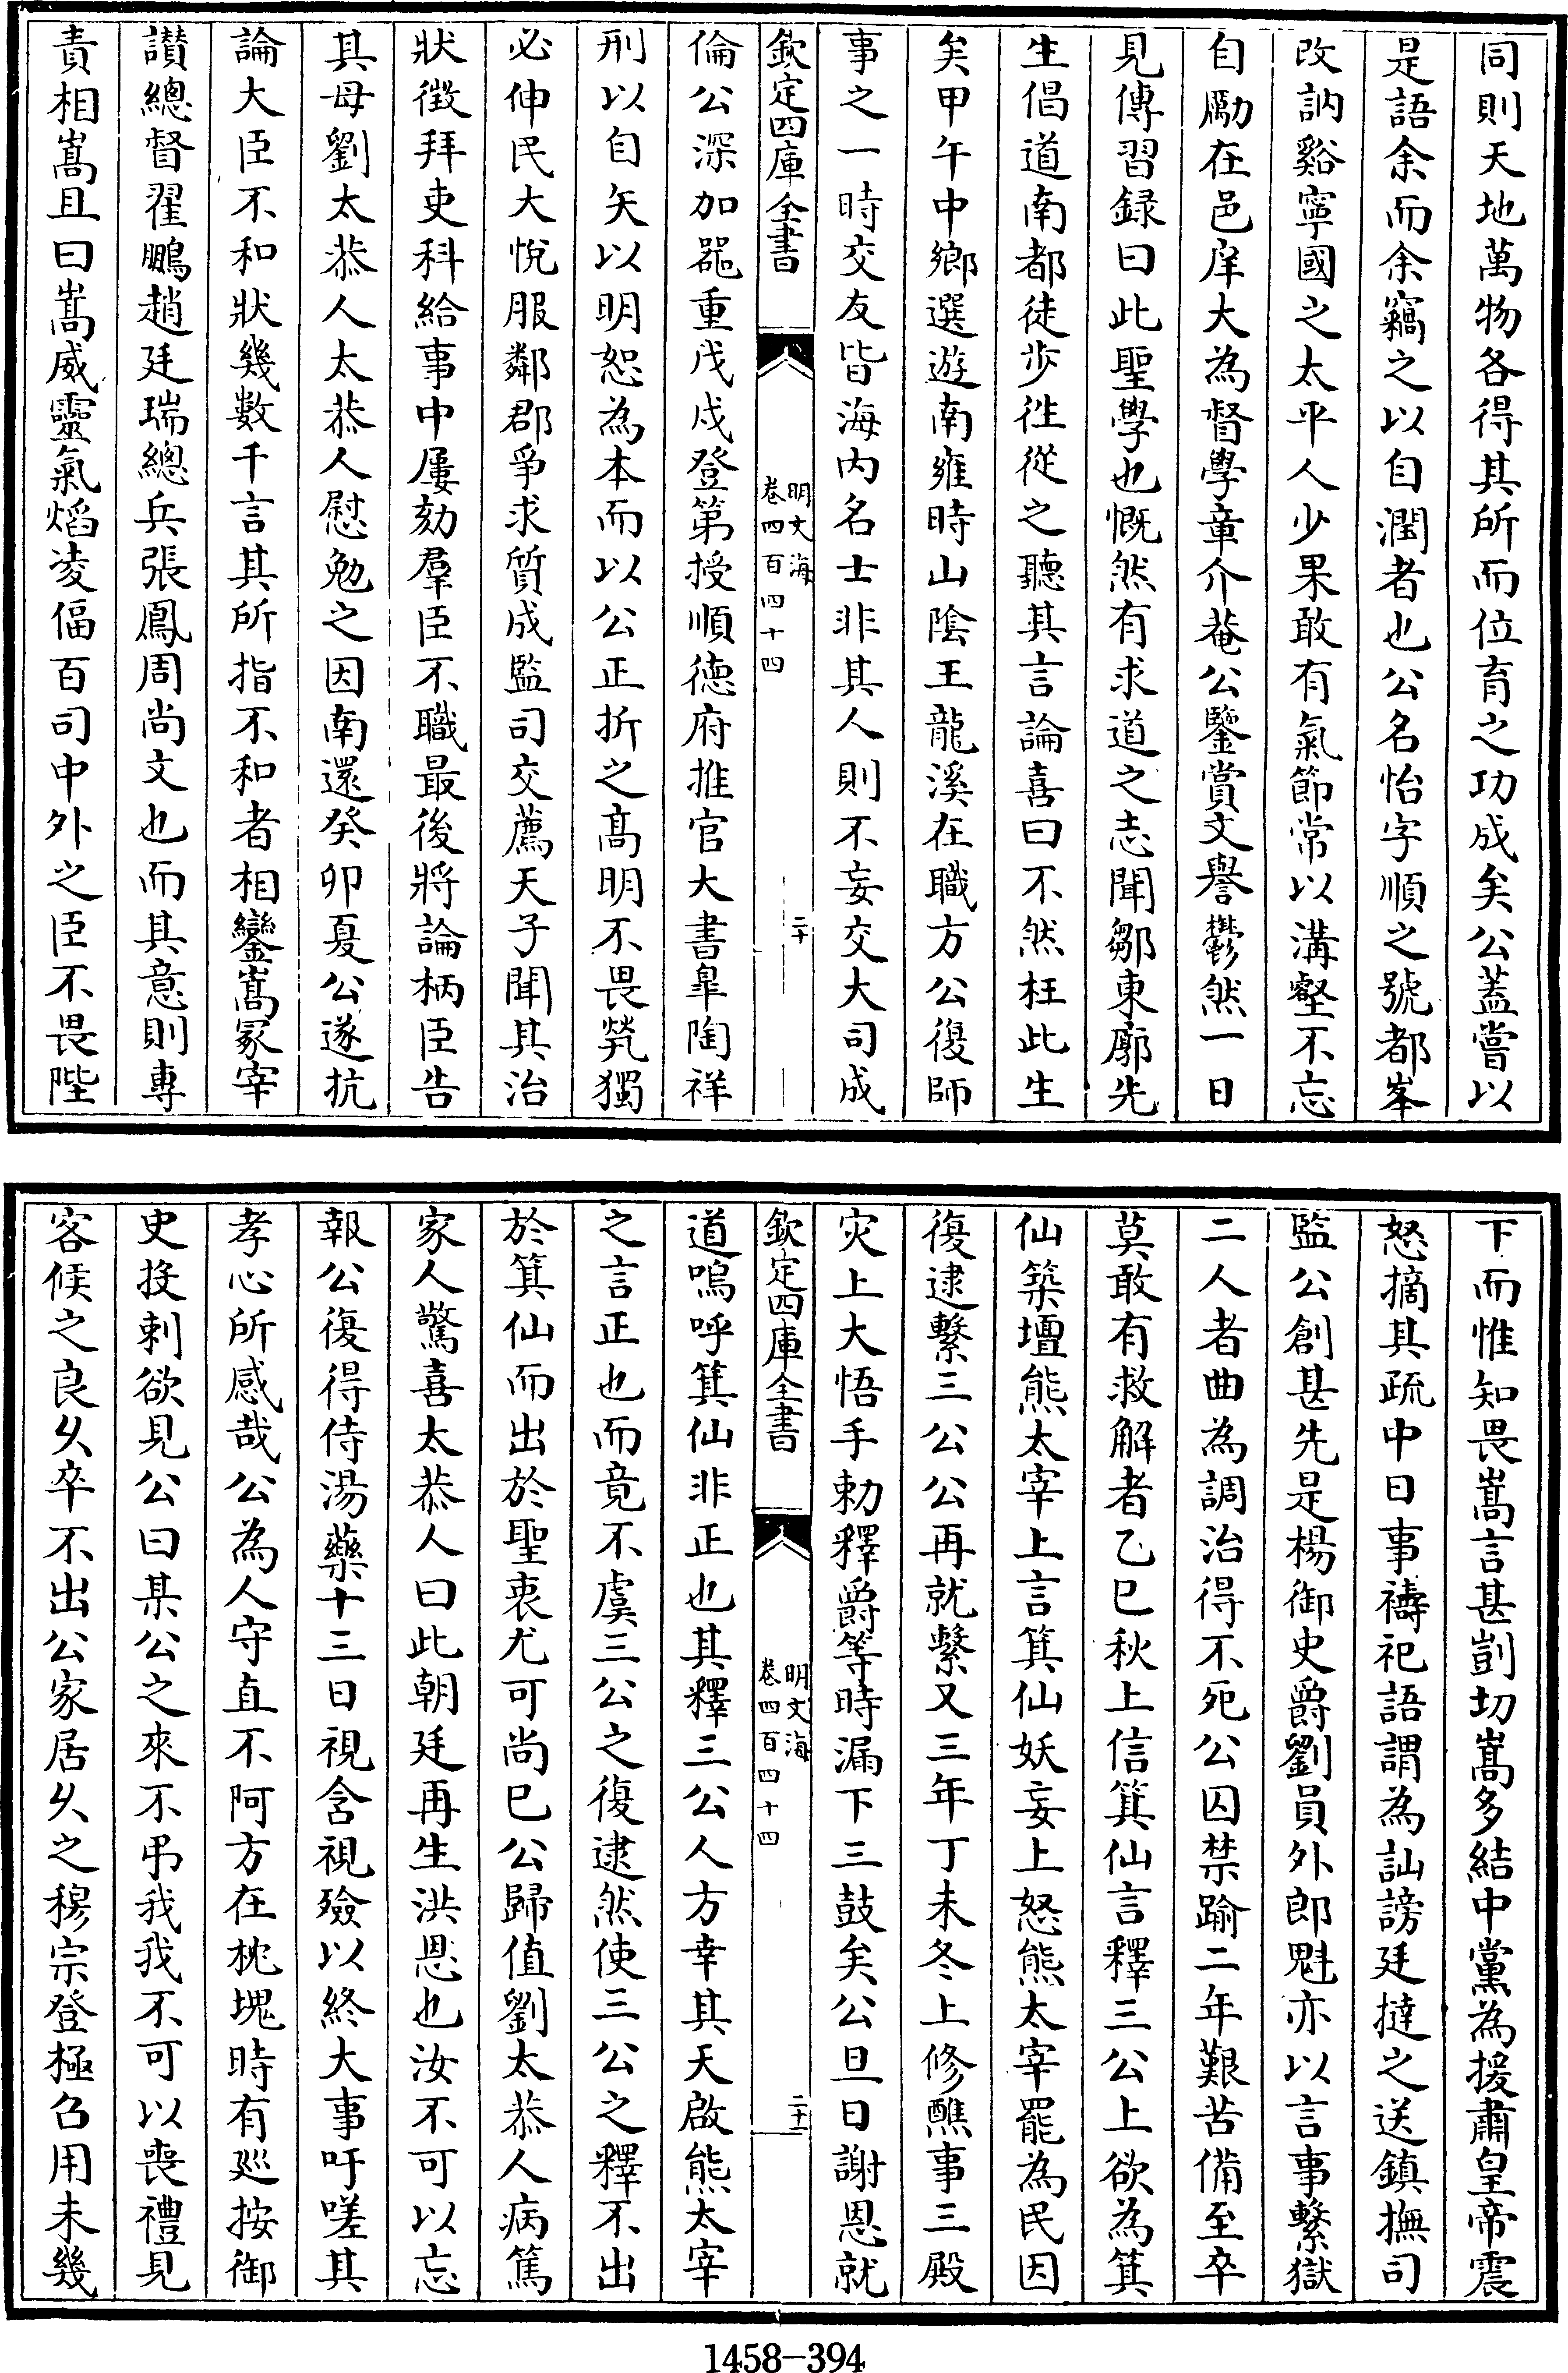 同則天地萬物各得其所而位育之功成矣公蓋嘗以
是語余而余竊之以自潤者也公名怡字順之號都峯
改訥谿寧國之太平人少果敢有氣節常以溝壑不忘
自勵在邑庠大為督學章介菴公鑒賞文譽鬱然一日
見傳習録曰此聖學也慨然有求道之志聞鄒東廓先
生倡道南都徒步徃從之聽其言論喜曰不然枉此生
矣甲午中鄉選遊南雍時山隂王龍溪在職方公復師
事之一時交友皆海内名士非其人則不妄交大司成
欽定四庫全書
明文海
卷四百四十四
二十
倫公深加噐重戊戌登第授順德府推官大書臯陶祥
刑以自矢以明恕為本而以公正折之髙明不畏㷀獨
必伸民大悅服鄰郡爭求質成監司交薦天子聞其治
狀徴拜吏科給事中屢劾羣臣不職最後將論柄臣告
其母劉太恭人太恭人慰勉之因南還癸卯夏公遂抗
論大臣不和狀幾數千言其所指不和者相鑾嵩冡宰
讃總督翟鵬趙廷瑞總兵張鳳周尚文也而其意則專
責相嵩且曰嵩威靈氣焰凌偪百司中外之臣不畏陛
下而惟知畏嵩言甚剴切嵩多結中黨為援肅皇帝震
怒摘其疏中日事禱祀語謂為訕謗廷撻之送鎮撫司
監公創甚先是楊御史爵劉員外郎魁亦以言事繫獄
二人者曲為調治得不死公囚禁踰二年艱苦備至卒
莫敢有救解者乙巳秋上信箕仙言釋三公上欲為箕
仙築壇熊太宰上言箕仙妖妄上怒熊太宰罷為民因
復逮繫三公公再就繫又三年丁未冬上修醮事三殿
灾上大悟手勅釋爵等時漏下三鼓矣公旦日謝恩就
欽定四庫全書
明文海
卷四百四十四
二十一
道嗚呼箕仙非正也其釋三公人方幸其天啟熊太宰
之言正也而竟不虞三公之復逮然使三公之釋不出
於箕仙而出於聖衷尤可尚已公歸值劉太恭人病篤
家人驚喜太恭人曰此朝廷再生洪恩也汝不可以忘
報公復得侍湯藥十三日視含視殮以終大事吁嗟其
孝心所感哉公為人守直不阿方在枕塊時有廵按御
史投刺欲見公曰某公之來不弔我我不可以喪禮見
客候之良乆卒不出公家居乆之穆宗登極召用未幾
1458-394